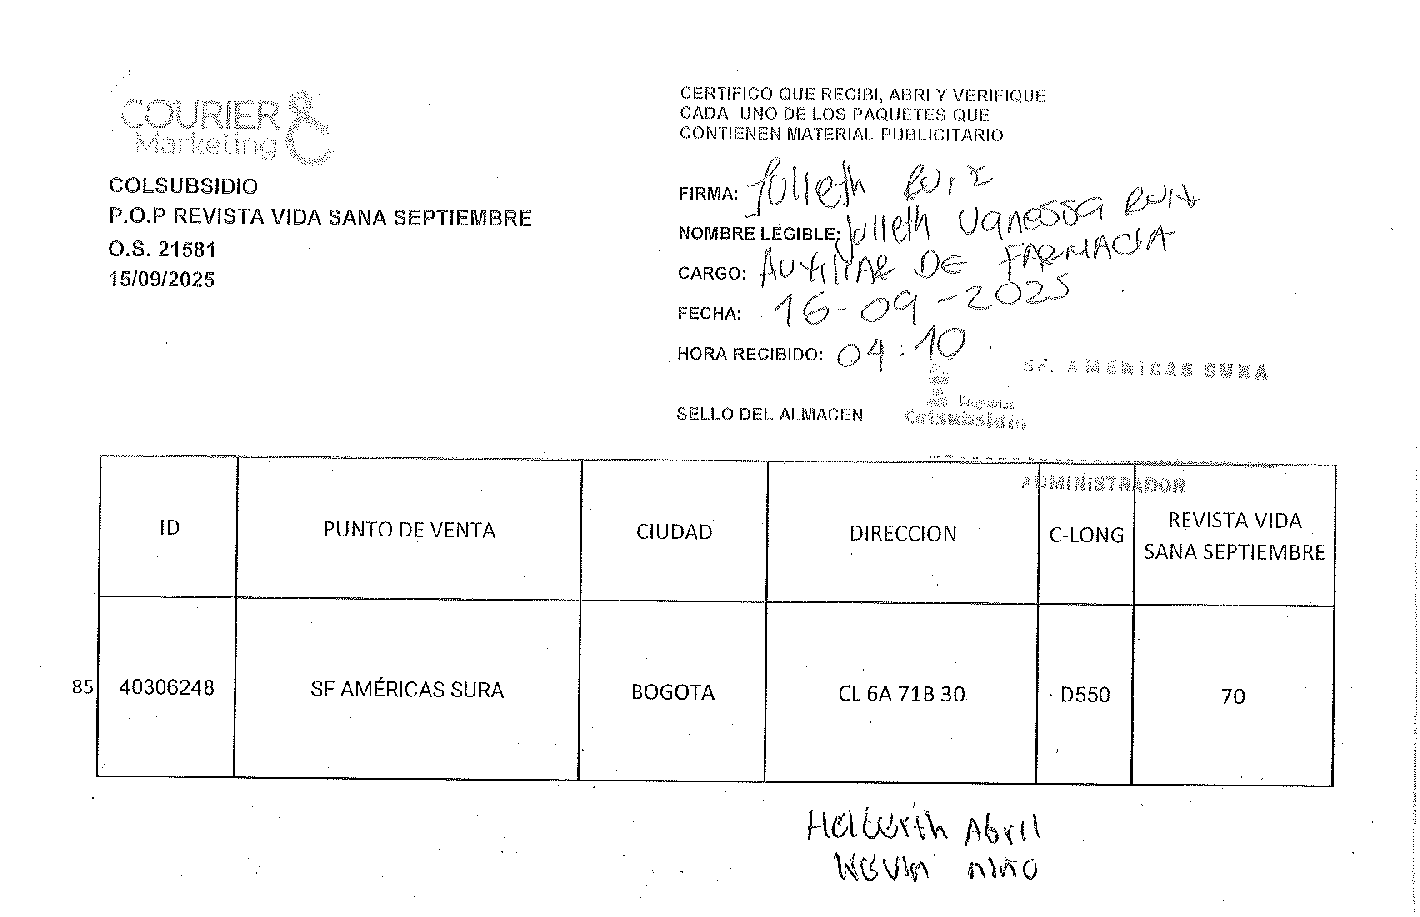 COURIER
Marketing
COLSUBSIDIO
P.O.P REVISTA VIDA SANA SEPTIEMBRE
O.S. 21581
15/09/2025
CERTIFICO QUE RECIBI, ABRI Y VERIFIQUE
CADA UNO DE LOS PAQUETES QUE
CONTIENEN MATERIAL PUBLICITARIO
FIRMA: Julieth Ruiz
NOMBRE LEGIBLE: Julieth Vanessa Ruiz
CARGO: AUXILIAR DE FARMACIA
FECHA: 16-09-2025
HORA RECIBIDO: 04:10
SF. AMERICAS SURA
Colsubsidio
SELLO DEL ALMACEN
ADMINISTRADOR
ID PUNTO DE VENTA CIUDAD DIRECCION C-LONG REVISTA VIDA SANA SEPTIEMBRE
85 40306248 SF AMÉRICAS SURA BOGOTA CL 6A 71B 30 D550 70
Abril
Kevin Niño